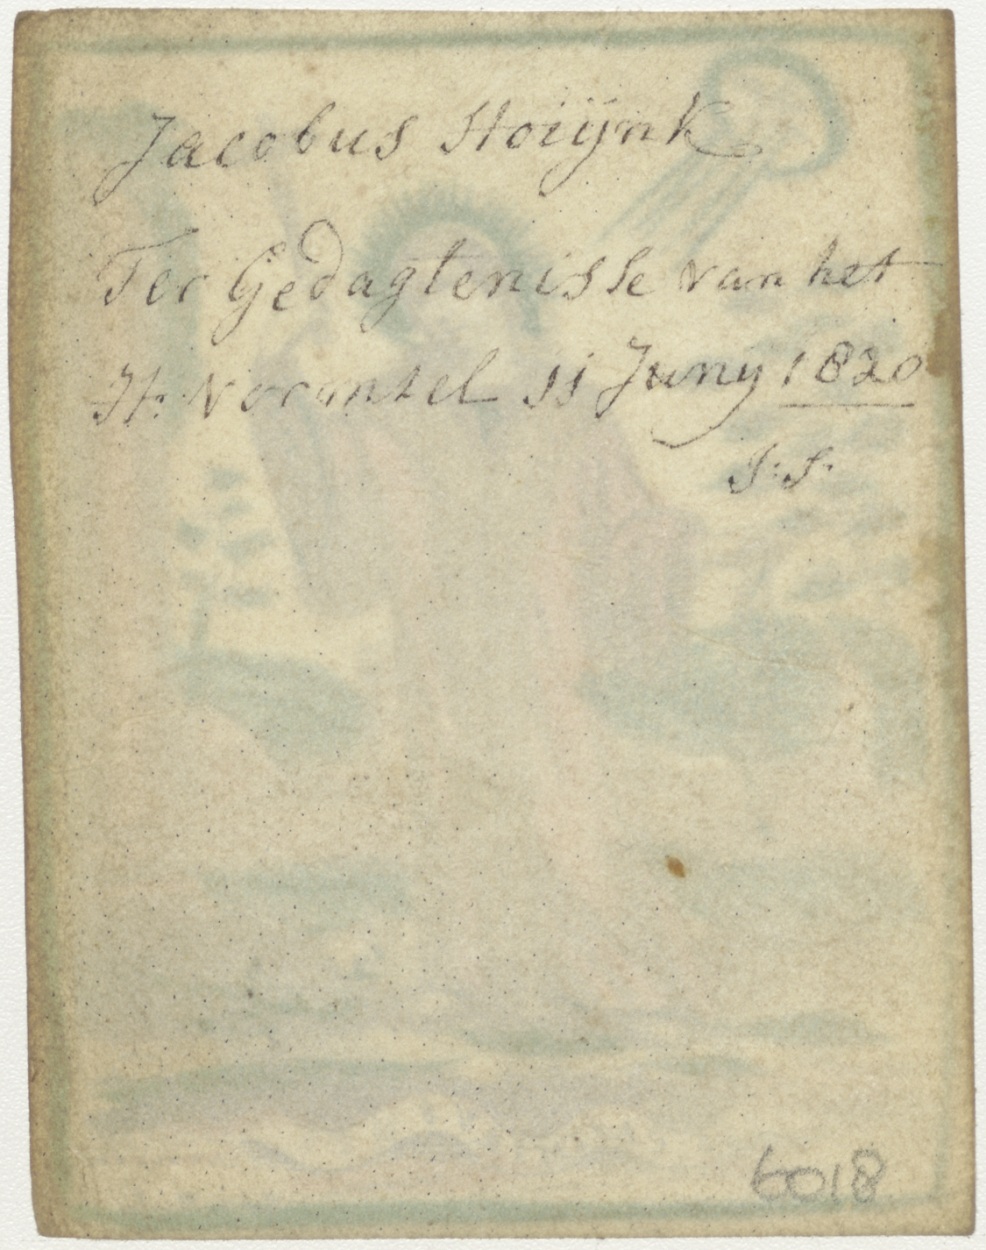 Jacobus Hoiÿnk
Ter Gedagtenisse van het
H: Vormsel 11 Juny 1820
J: S:
6018